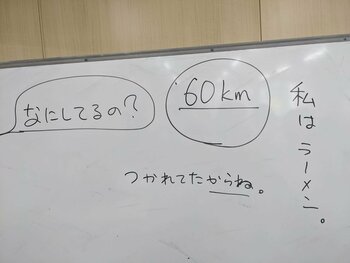 なにしてるの?
60km
つかれてたからね。
私はラーメン。